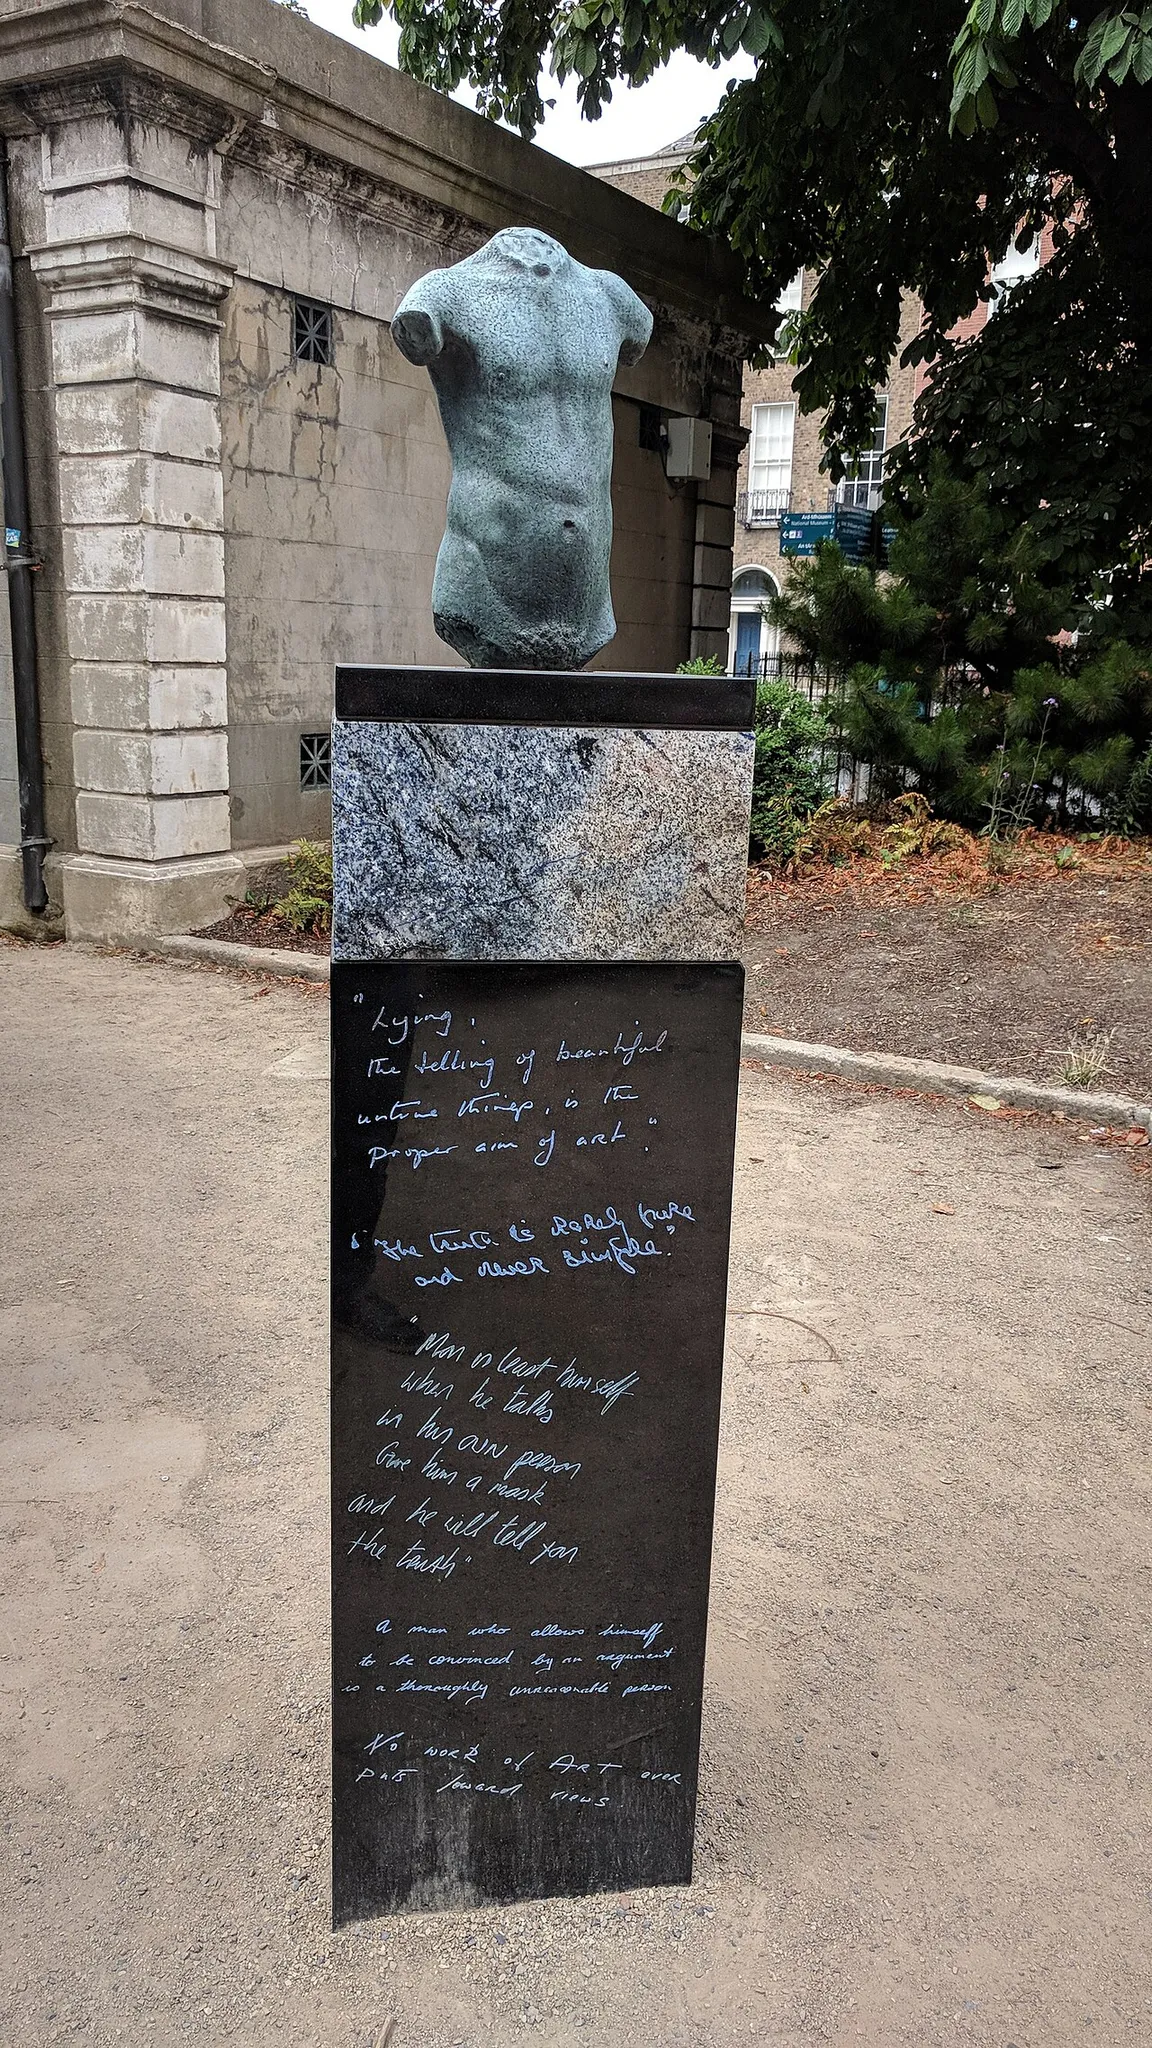 "Lying,
the telling of beautiful
untrue things, is the
proper aim of art."
"The truth is rarely pure
and never simple."
"Man is least himself
when he talks
in his own person
Give him a mask
and he will tell you
the truth"
A man who allows himself
to be convinced by an argument
is a thoroughly unreasonable person
No work of Art ever
puts forward views
Ard-Mhúsaem
National Museum